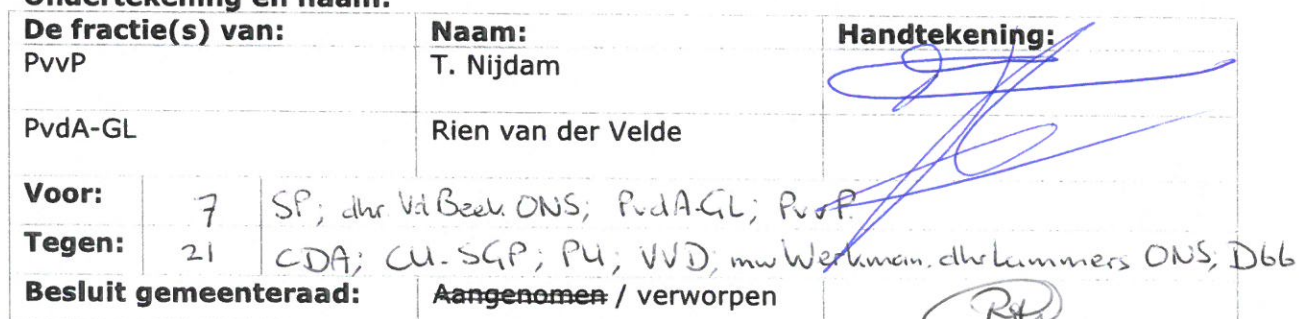 Ondertekening en naam:
De fractie(s) van: Naam: Handtekening:
PvvP T. Nijdam
PvdA-GL Rien van der Velde
Voor: 7 SP; dhr. Vd Beek ONS; PvdA-GL; PvvP.
Tegen: 21 CDA; CU-SGP; PU; VVD; mw Werkman, dhr Lammers ONS; D66
Besluit gemeenteraad: Aangenomen / verworpen